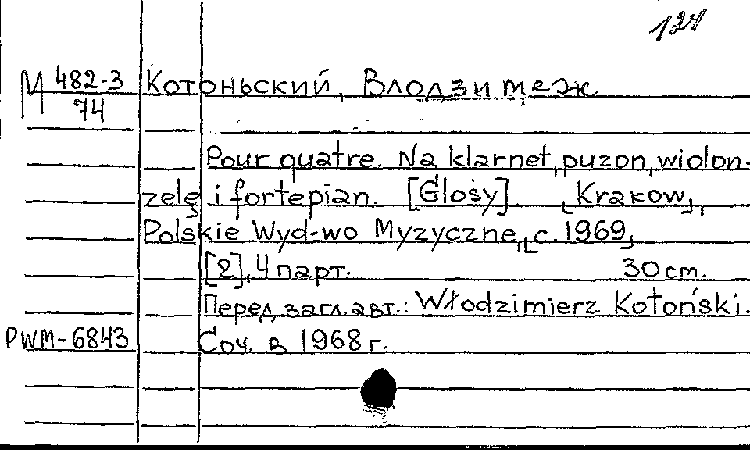 124
М 482-3
74
Котоньский, Влодзимеж
Pour quatre. Na klarnet, puzon, wiolon-
zelę i fortepian. [Głosy]. [Krakow],
Polskie Wyd-wo Myzyczne, [c. 1969]
[2], 4 парт. 30 cm.
Перед загл. авт.: Włodzimierz Kotoński.
PWM-6843 Соч. в 1968 г.